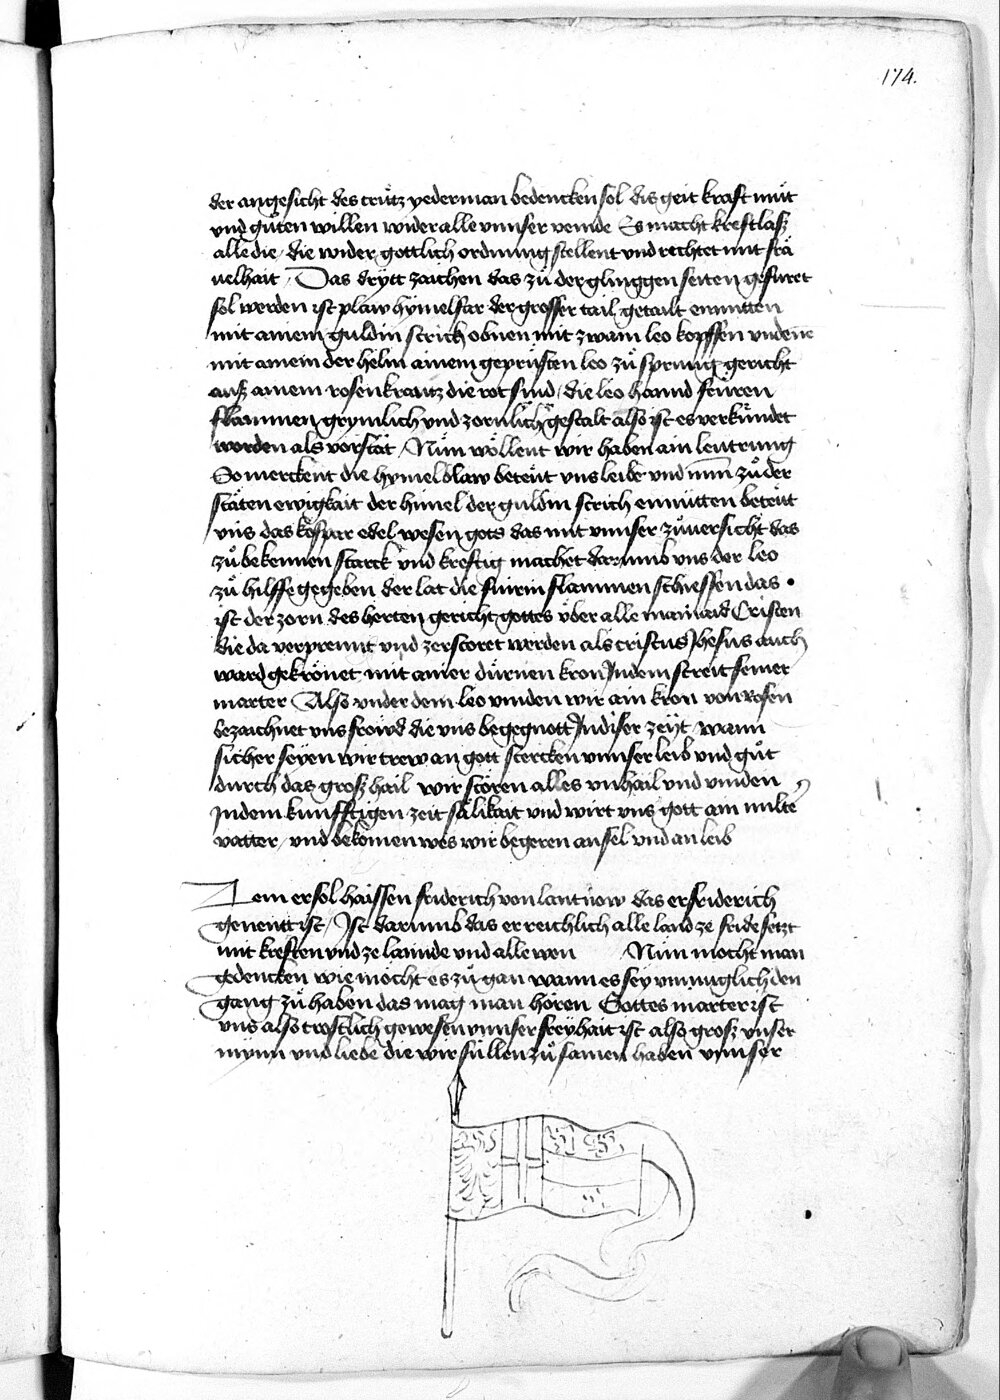 174.
der angesicht des crütz yederman bedencken sol dis geit kraft müt
vnd güten willen wider alle vnnser veinde Es macht kreftlasz
alle die / die wider gottlich ordnung stellent vnd rechtet mit frä
uelhait / Das drytt zaichen das zů der glinggen seiten gefüret
sol werden ist plaw hymelfar der grosser tail getailt enmitten
mit ainem guldin strich obnen mit zwain leo kopffen vndene
mit ainem der helm ainem geprüsten leo zů sprung gericht
ausz ainem rosenkrantz die rot sind / die leo hannd feüren
flammen grymlich vnd zornlich gestalt also ist es verkündet
worden als vorstat / Nün wöllent wir haben ain leutrung
So merckent die hymelblaw beteüt vns leibe vnd zů der
stäten ewigkait der himel der guldin strich enmitten beteüt
vns das kospar edel wesen gots das mit vnnser zůuersicht das
zů bekennen starck vnd kreftig machet darumb vns der leo
zů hilffe gegeben der lat die fuirin flammen schiessen das •
ist der zorn des herten gericht gottes über alle mainaid Cristen
die da verprennt vnd zerstoret werden als cristus Jhesus auch
ward gekrönet mit ainer dürnen kron Jndem streit seiner
marter Also vnder dem leo vinden wir ain kron von rosen
bezaichnet vns fröwd die vns begegnott Jndiser zeyt / wann
sicher seyen wir trew an gott stercken vnnser leib vnd gůt
durch das grosz hail wir stören alles vnhail vnd vinden
Jndem kunfftigen zeit sälikait vnd wirt vns gott ain milte
vatter / vnd bekomen wes wir begeren an sel vnd an leib
Dem er sol haissen friderich von lantnow das er friderich
genennt ist / Ist darumb das er reichlich alle land ze fride setzt
mit kreften vnd ze lannde vnd alle wen Nün mocht man
gedencken wie möcht es zů gan wann es sey vnmuglich den
gang zů haben das mag man hören Gottes marter ist
vns also trostlich gewesen vnnser freyhait ist also grosz vnser
mynn vnd liebe die wir süllen zů samen haben vnnser